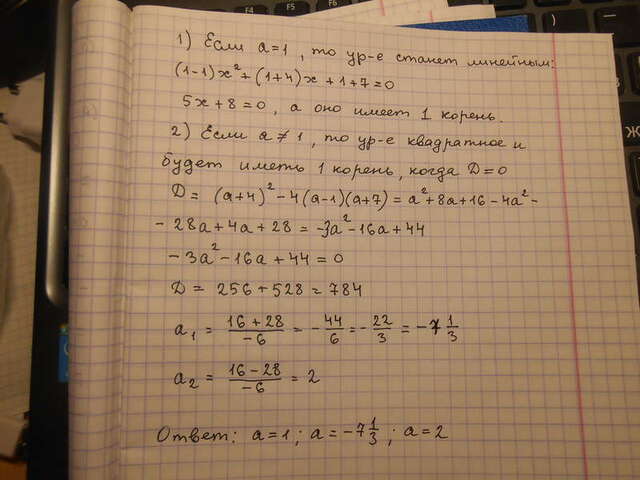 F4 F5 F6
1) Если a=1, то ур-е станет линейным:
(1-1)x²+(1+4)x+1+7=0
5x+8=0, а оно имеет 1 корень.
2) Если a≠1, то ур-е квадратное и
будет иметь 1 корень, когда D=0
D= (a+4)²-4(a-1)(a+7)=a²+8a+16-4a²-
-28a+4a+28=-3a²-16a+44
-3a²-16a+44=0
D= 256+528=784
a₁ = (16+28)/(-6) = -44/6 = -22/3 = -7 1/3
a₂ = (16-28)/(-6) = 2
Ответ: a=1; a=-7 1/3; a=2